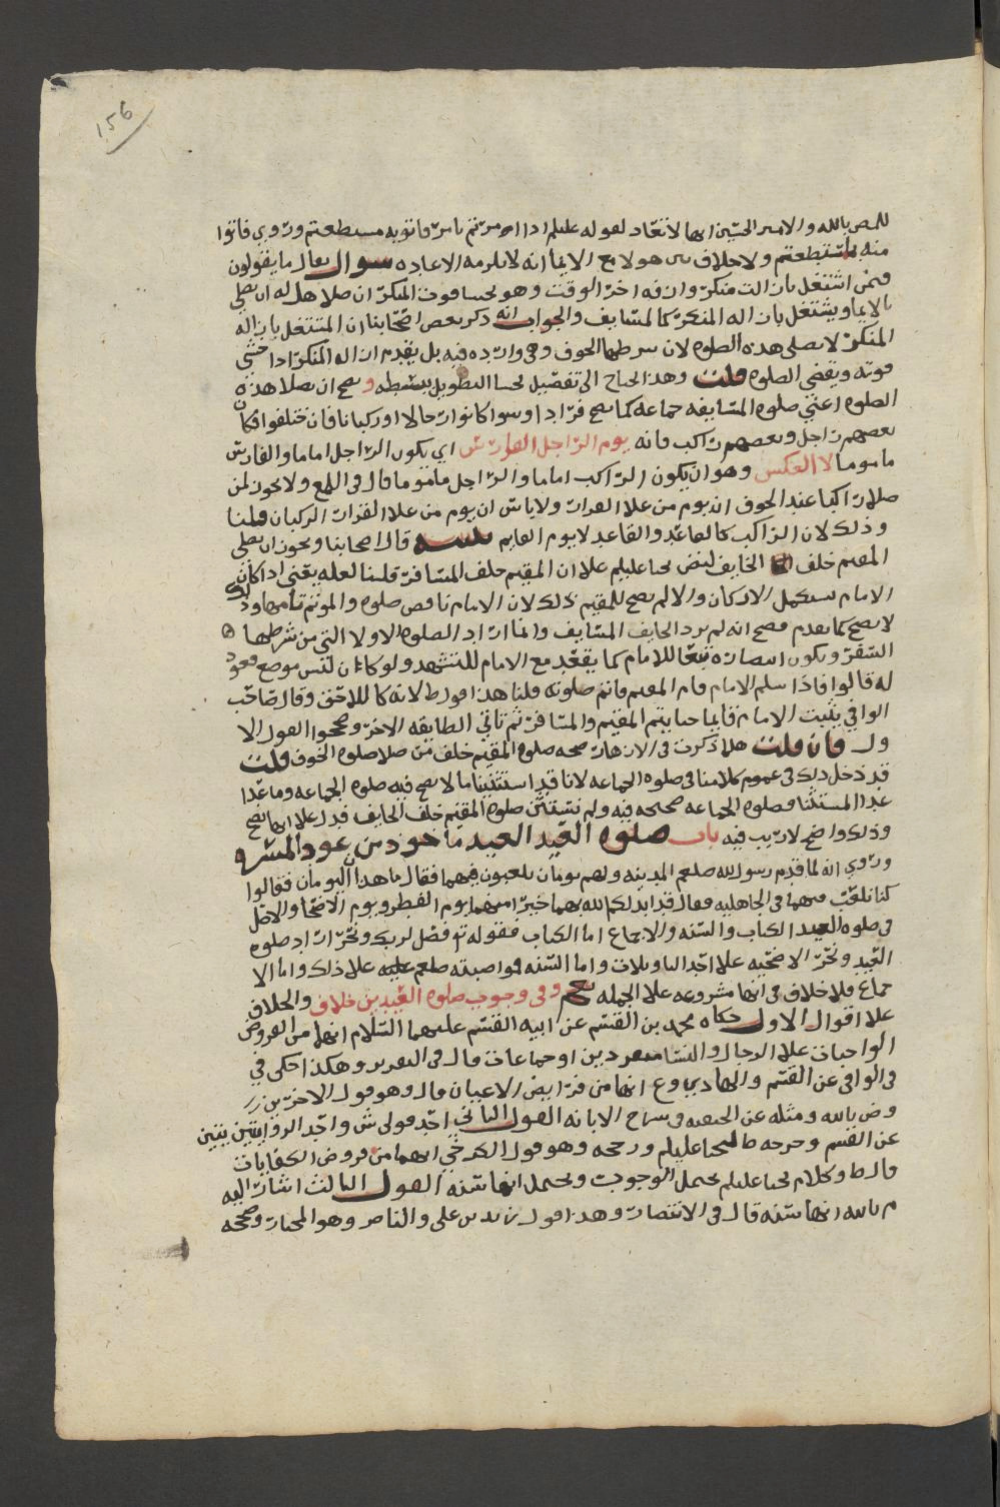 156
للمص بالله والامير الحسين انها لا تعاد لقوله عليلم اذا امرتم بامر فاتوا به ما استطعتم وروي فاتوا
منه ما استطعتم ولا خلاف بين هولا مع الايما انه لا يلزمه الاعاده سوال يقال ما يقولون
فيمن اشتغل بازالت منكر وازف اخر الوقت وهو يخشا فوت المنكر ان صلا هل له ان يصلي
بالايما ويشتغل بازاله المنكر كالمسايف والجواب انه ذكر بعض اصحابنا ان المشتغل بازاله
المنكر لا يصلي هذه الصلوه لان شرطها الخوف وهي وارده فيه بل يقدم ازاله المنكر اذا خشي
فوته ويقضي الصلوه قلت وهذا يحتاج الى تفصيل يخشا التطويل ببسطه ويصح ان يصلا هذه
الصلوه اعني صلوه المسايفه جماعه كما يصح فرادا وسوا كانوا رجالا او ركبانا فان اختلفوا فكان
بعضهم راجل وبعضهم راكب فانه يوم الراجل الفارس اي يكون الراجل اماما والفارس
ماموما لا العكس وهو ان يكون الراكب اماما والراجل ماموما قال في اللمع ولا يجوز لمن
صلا راكبا عند الخوف ان يوم من علا القرار ولا باس ان يوم من علا القرار الركبان قلنا
وذلك لان الراكب كالقاعد والقاعد لا يوم القايم تنبيه قال اصحابنا ويجوز ان يصلي
المقيم خلف الخايف لنص يحيا عليلم علا ان المقيم خلف المسافر قلنا لعله يعني اذا كان
الامام يستكمل الاركان والا لم يصح للمقيم ذلك لان الامام ناقص صلوه والموتم تامها وذلك
لا يصح كما تقدم فصح انه لم يرد الخايف المسايف وانما اراد الصلوه الاولا التي من شرطها
السفر ويكون انتصاره تبعا للامام كما يقعد مع الامام للتشهد ولو كان ليس موضع قعود
له قالوا فاذا سلم الامام قام المقيم فاتم صلوته قلنا هذا قول ط لانه كاللاحق وقال صاحب
الوافي يثبت الامام قايما حتا يتم المقيم والمسافر ثم تاتي الطايفه الاخر وصححوا القول الا
ول فان قلت هلا ذكرت في الازهار صحه صلوه المقيم خلف من صلا صلوه الخوف قلت
قد دخل ذلك في عموم كلامنا في صلوه الجماعه لانا قد استثنينا ما لا يصح فيه صلوه الجماعه وما عدا
عدا المستثنا فصلوه الجماعه صحيحه فيه ولم نستثن صلوه المقيم خلف الخايف فدل علا انها تصح
وذلك واضح لا ريب فيه باب صلوه العيد العيد ماخوذ من عود المسره
وروي انه لما قدم رسول الله صلعم المدينه ولهم يومان يلعبون فيهما فقال ما هذان اليومان فقالوا
كنا نلعب فيهما في الجاهليه فقال قد ابدلكم الله بهما خيرا منهما يوم الفطر ويوم الاضحا والاصل
في صلوه العيد الكتاب والسنه والاجماع اما الكتاب فقوله تع فصل لربك ونحر اراد صلوه
العيد ونحر الاضحيه علا احد التاويلات واما السنه فمواضبته صلعم عليه علا ذلك واما الا
جماع فلا خلاف في انها مشروعه علا الجمله نعم وفي وجوب صلوه العيدين خلاف والخلاف
علا اقوال الاول حكاه محمد بن القسم عن ابيه القسم عليهما السلام انها من الفروض
الواجبات علا الرجال والنسا منفردين او جماعات قال في التقرير وهكذا حكى في
في الوافي عن القسم والهادي وع انها من فرايض الاعيان قال وهو قول الاخرين زر
وض بالله ومثله عن الحنفيه وشراح الابانه القول الثاني احد قولي ش واحد الروايتين يتين
عن القسم وخرجه ط ليحيا عليلم ورجحه وهو قول الكرخي انهما من فروض الكفايات
قال ط وكلام يحيا عليلم يحتمل الوجوب ويحتمل انها سنه القول الثالث اشار اليه
م بالله انها سنه قال في الانتصار وهذا قول زيد بن علي والناصر وهو المختار وصححه